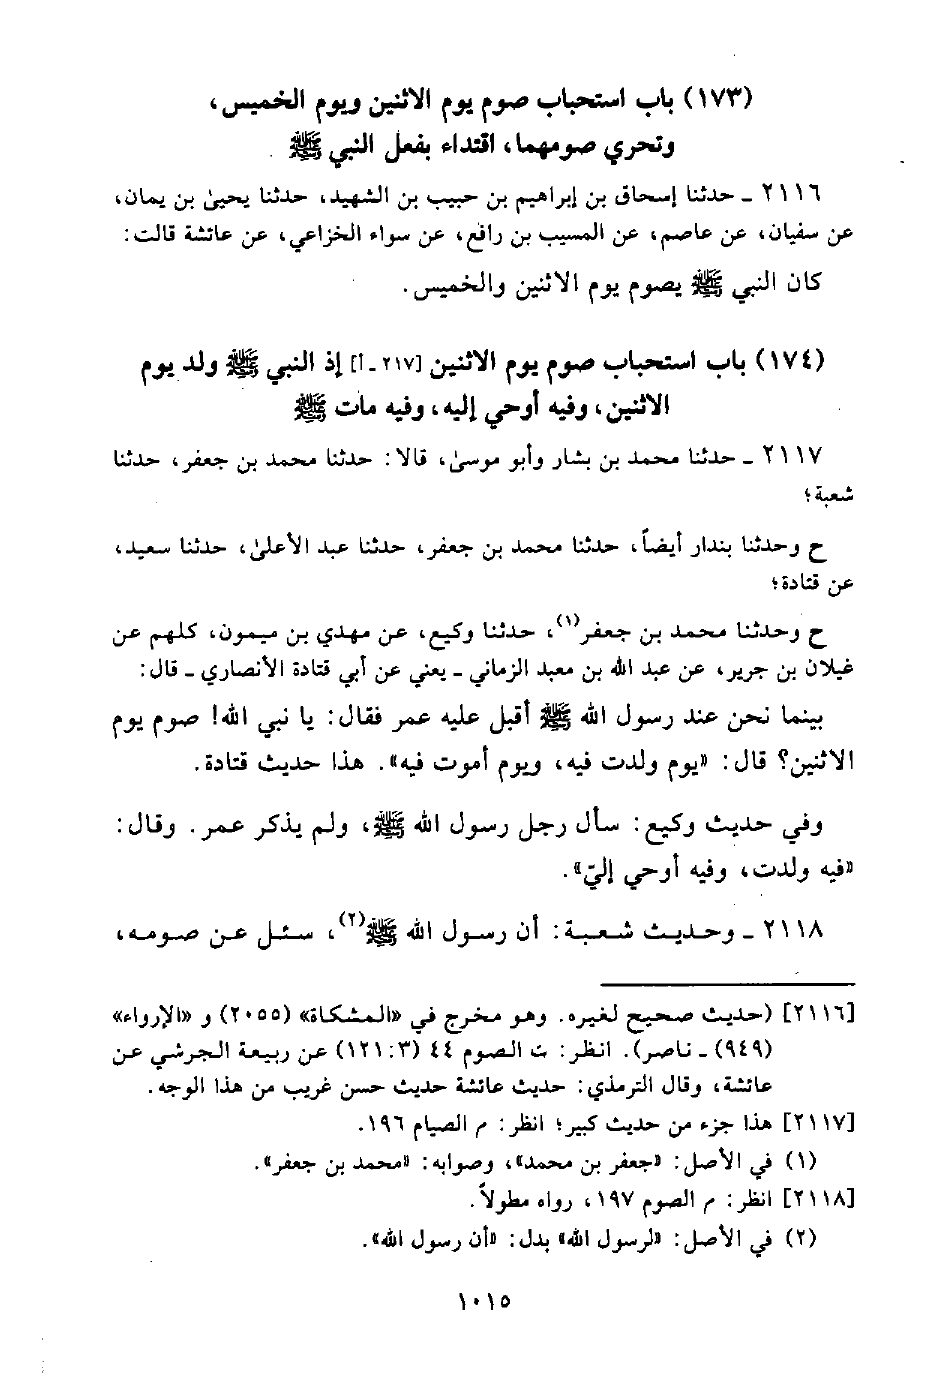 (١٧٣) باب استحباب صوم يوم الاثنين ويوم الخميس،
وتحري صومهما، اقتداء بفعل النبي ﷺ
٢١١٦ ـ حدثنا إسحاق بن إبراهيم بن حبيب بن الشهيد، حدثنا يحيىٰ بن يمان،
عن سفيان، عن عاصم، عن المسيب بن رافع، عن سواء الخزاعي، عن عائشة قالت:
كان النبي ﷺ يصوم يوم الاثنين والخميس.
(١٧٤) باب استحباب صوم يوم الاثنين [٢١٧ ـ أ] إذ النبي ﷺ ولد يوم
الاثنين، وفيه أوحي إليه، وفيه مات ﷺ
٢١١٧ ـ حدثنا محمد بن بشار وأبو موسىٰ، قالا: حدثنا محمد بن جعفر، حدثنا
شعبة؛
ح وحدثنا بندار أيضاً، حدثنا محمد بن جعفر، حدثنا عبد الأعلىٰ، حدثنا سعيد،
عن قتادة؛
ح وحدثنا محمد بن جعفر(١)، حدثنا وكيع، عن مهدي بن ميمون، كلهم عن
غيلان بن جرير، عن عبد الله بن معبد الزماني ـ يعني عن أبي قتادة الأنصاري ـ قال:
بينما نحن عند رسول الله ﷺ أقبل عليه عمر فقال: يا نبي الله! صوم يوم
الاثنين؟ قال: «يوم ولدت فيه، ويوم أموت فيه». هذا حديث قتادة.
وفي حديث وكيع: سأل رجل رسول الله ﷺ، ولم يذكر عمر. وقال:
«فيه ولدت، وفيه أوحي إليّ».
٢١١٨ ـ وحديث شعبة: أن رسول الله ﷺ(٢)، سئل عن صومه،
[٢١١٦] (حديث صحيح لغيره. وهو مخرج في «المشكاة» (٢٠٥٥) و «الإرواء»
(٩٤٩) ـ ناصر). انظر: ت الصوم ٤٤ (٣: ١٢١) عن ربيعة الجرشي عن
عائشة، وقال الترمذي: حديث عائشة حديث حسن غريب من هذا الوجه.
[٢١١٧] هذا جزء من حديث كبير؛ انظر: م الصيام ١٩٦.
(١) في الأصل: «جعفر بن محمد»، وصوابه: «محمد بن جعفر».
[٢١١٨] انظر: م الصوم ١٩٧، رواه مطولاً.
(٢) في الأصل: «لرسول الله» بدل: «أن رسول الله».
١٠١٥